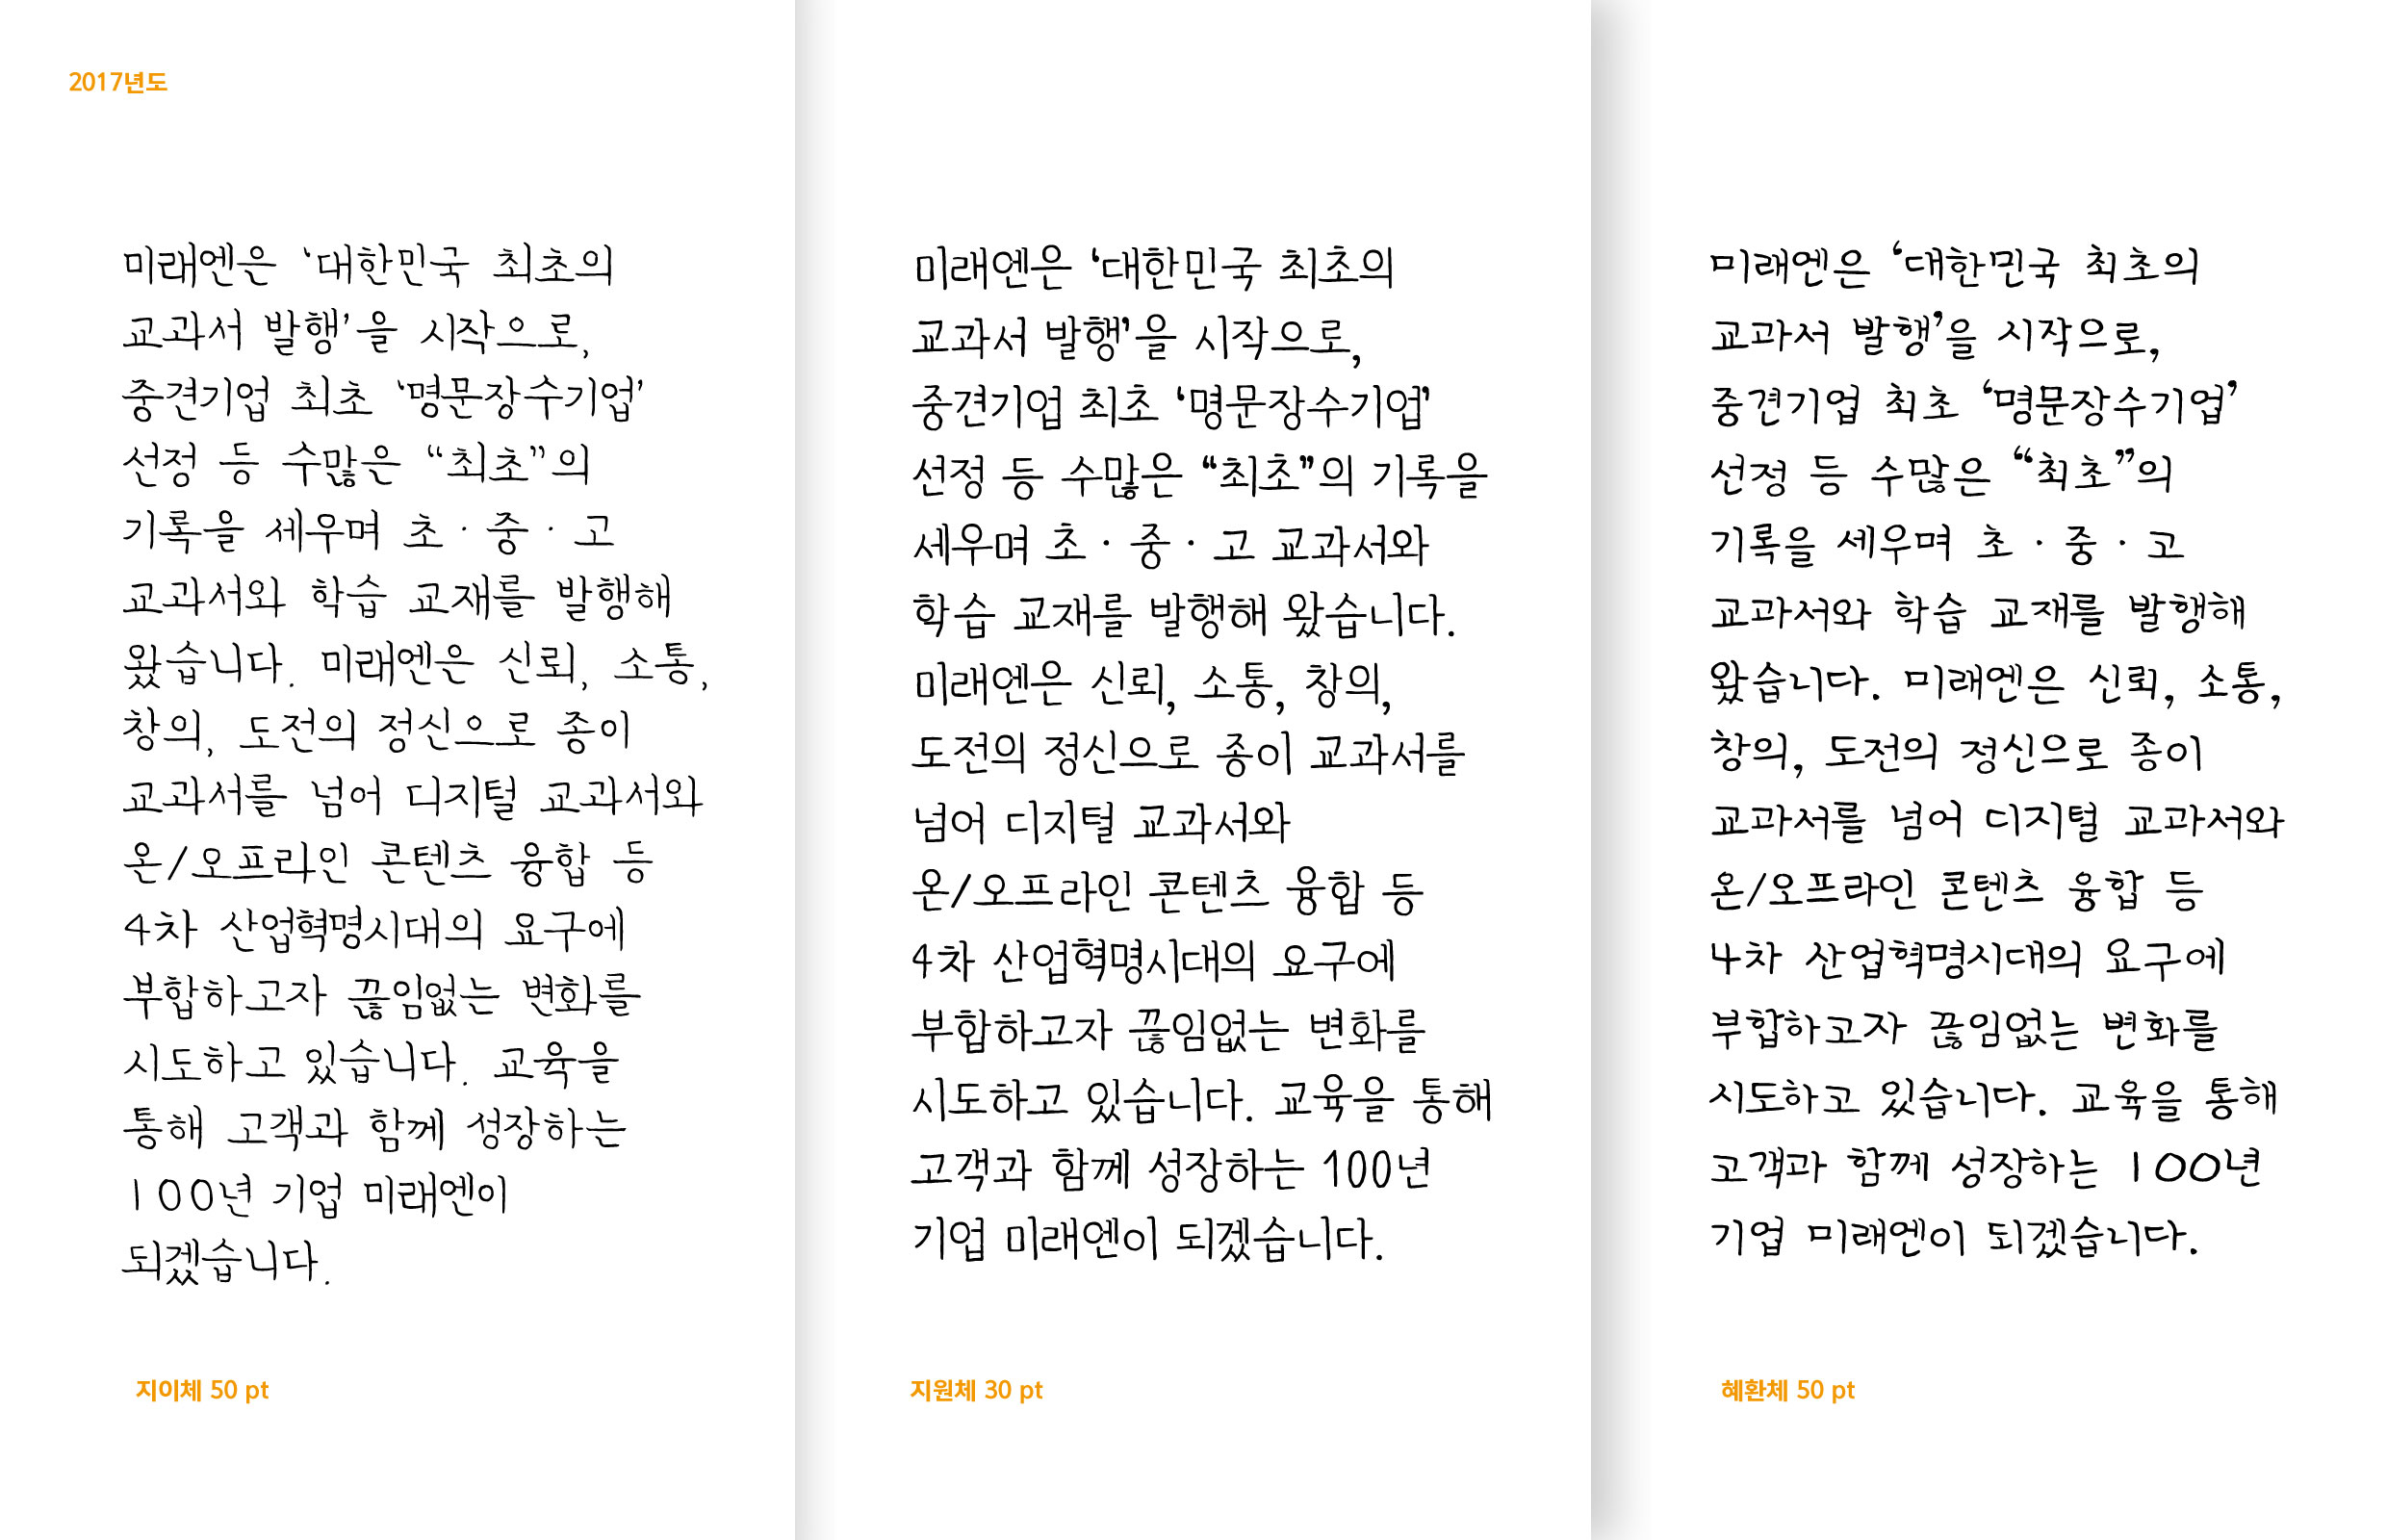 2017년도
미래엔은 ‘대한민국 최초의
교과서 발행’을 시작으로,
중견기업 최초 ‘명문장수기업’
선정 등 수많은 “최초”의
기록을 세우며 초 · 중 · 고
교과서와 학습 교재를 발행해
왔습니다. 미래엔은 신뢰, 소통,
창의, 도전의 정신으로 종이
교과서를 넘어 디지털 교과서와
온/오프라인 콘텐츠 융합 등
4차 산업혁명시대의 요구에
부합하고자 끊임없는 변화를
시도하고 있습니다. 교육을
통해 고객과 함께 성장하는
100년 기업 미래엔이
되겠습니다.
지이체 50 pt
미래엔은 ‘대한민국 최초의
교과서 발행’을 시작으로,
중견기업 최초 ‘명문장수기업’
선정 등 수많은 “최초”의 기록을
세우며 초 · 중 · 고 교과서와
학습 교재를 발행해 왔습니다.
미래엔은 신뢰, 소통, 창의,
도전의 정신으로 종이 교과서를
넘어 디지털 교과서와
온/오프라인 콘텐츠 융합 등
4차 산업혁명시대의 요구에
부합하고자 끊임없는 변화를
시도하고 있습니다. 교육을 통해
고객과 함께 성장하는 100년
기업 미래엔이 되겠습니다.
지원체 30 pt
미래엔은 ‘대한민국 최초의
교과서 발행’을 시작으로,
중견기업 최초 ‘명문장수기업’
선정 등 수많은 “최초”의
기록을 세우며 초 · 중 · 고
교과서와 학습 교재를 발행해
왔습니다. 미래엔은 신뢰, 소통,
창의, 도전의 정신으로 종이
교과서를 넘어 디지털 교과서와
온/오프라인 콘텐츠 융합 등
4차 산업혁명시대의 요구에
부합하고자 끊임없는 변화를
시도하고 있습니다. 교육을 통해
고객과 함께 성장하는 100년
기업 미래엔이 되겠습니다.
혜환체 50 pt